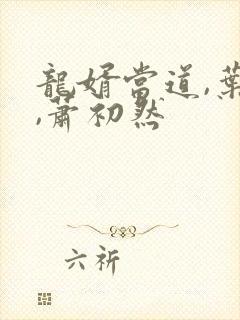 龍婿當道,葉
,蕭初然
六祈